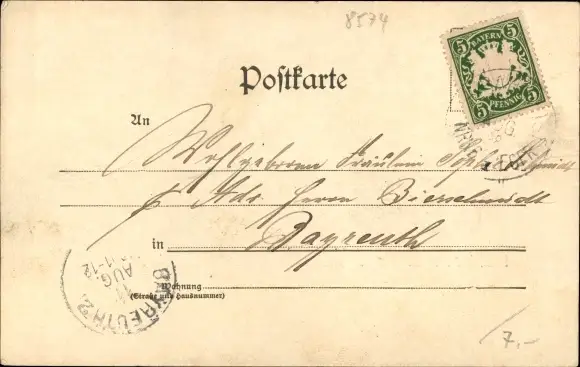 8574
5 BAYERN 5
5 PFENNIG 5
Postkarte
An
Wohlgeboren Fräulein
Adr. Herrn
in Bayreuth
Wohnung
(Straße und Hausnummer)
BAYREUTH 2
AUG
11-12
7,-